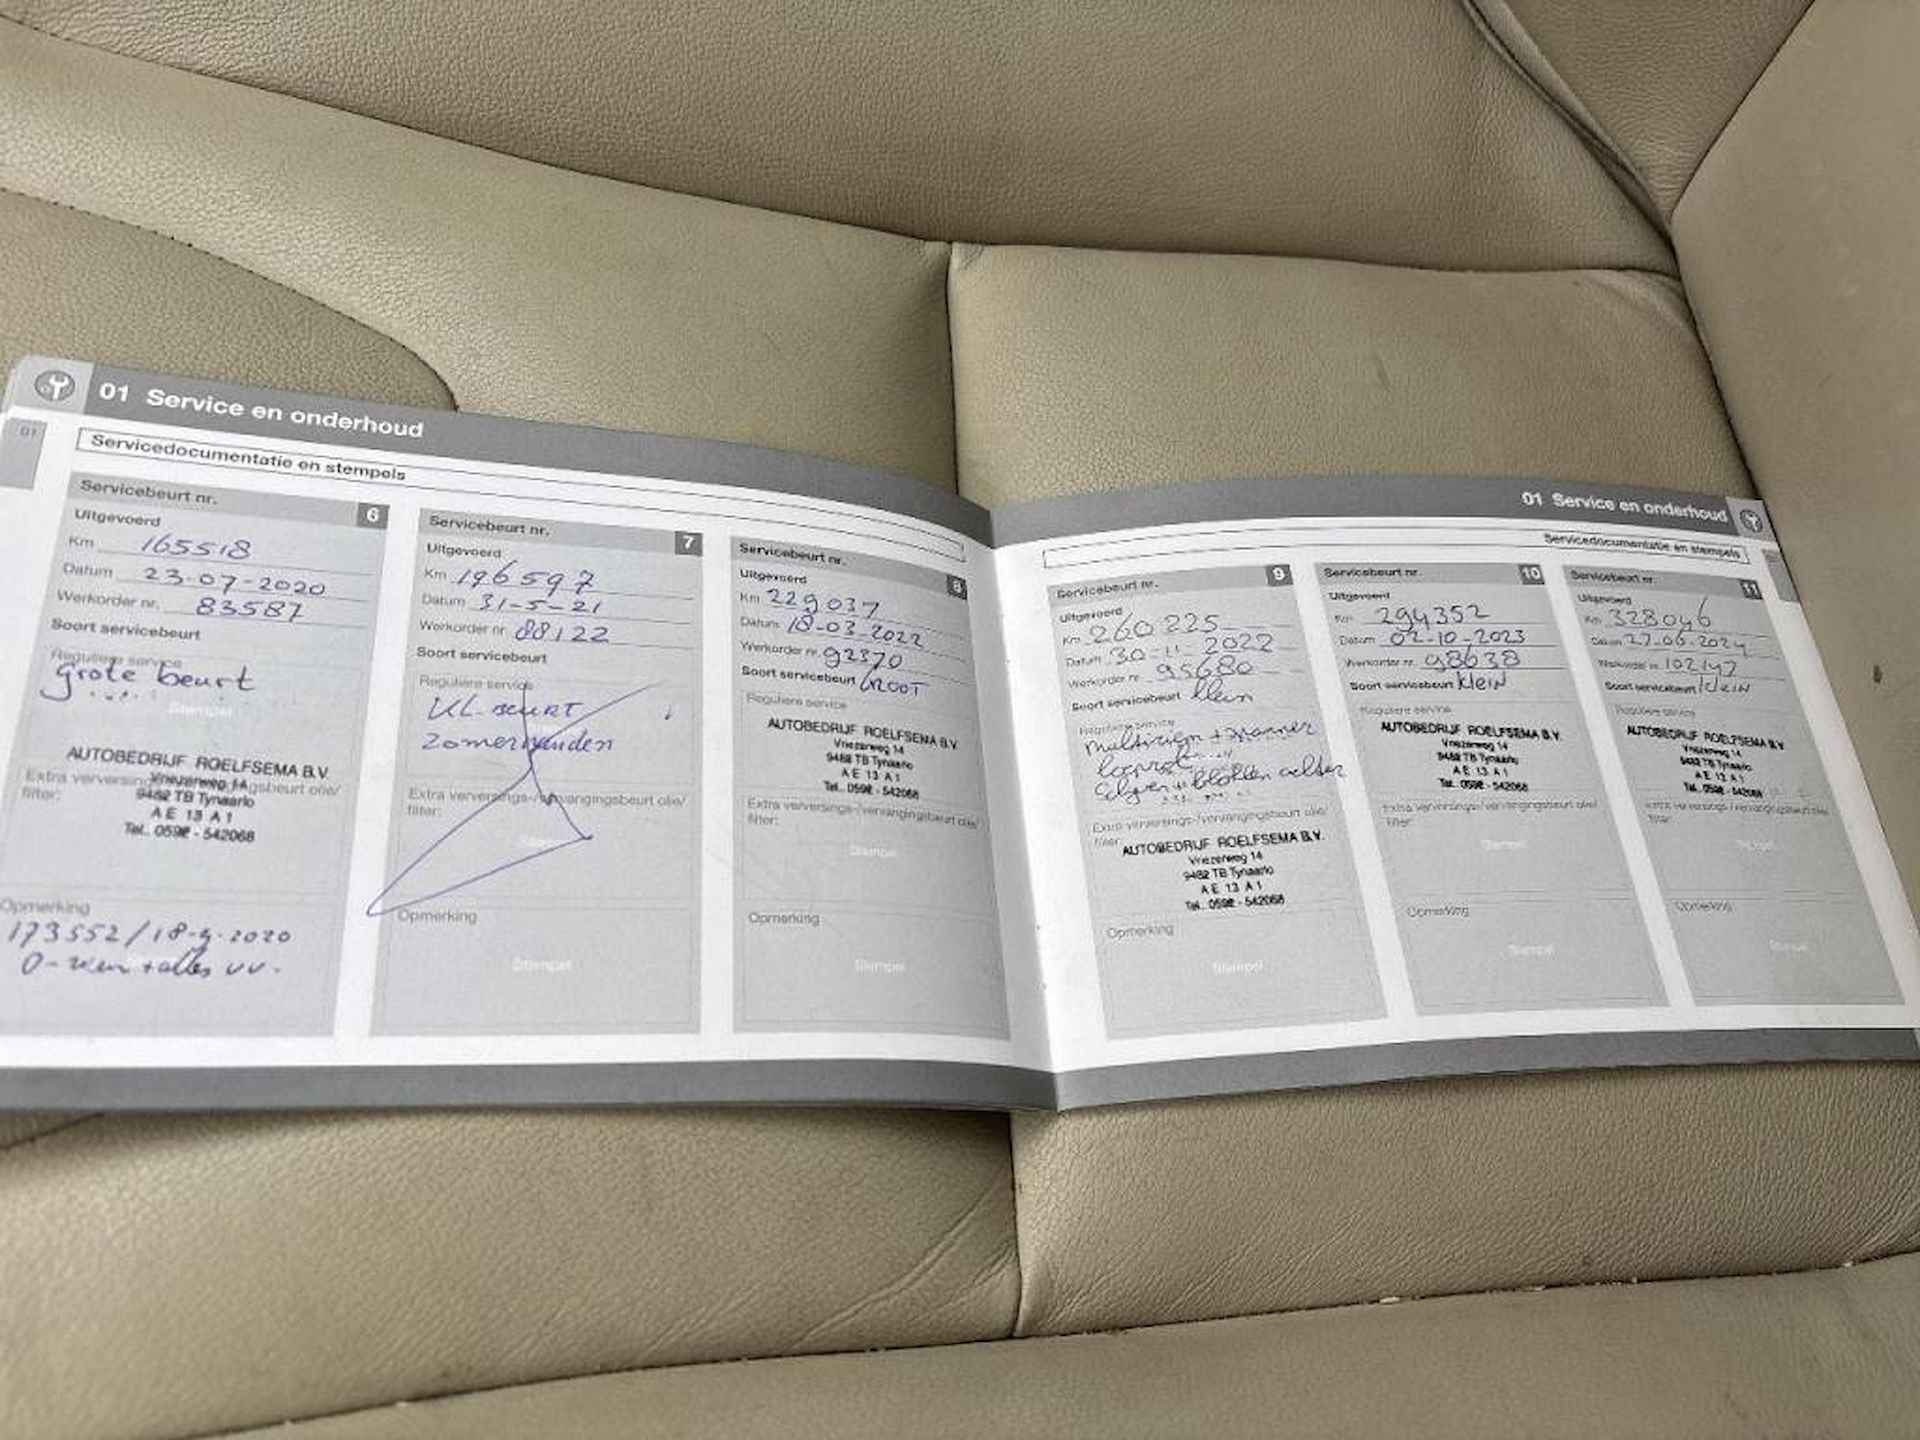 01 Service en onderhoud
01
Servicedocumentatie en stempels
Servicebeurt nr. 6
Uitgevoerd
Km 165518
Datum 23-07-2020
Werkorder nr. 83587
Soort servicebeurt
Reguliere service
grote beurt
Stempel
AUTOBEDRIJF ROELFSEMA B.V.
Vriezerweg 14
9482 TB Tynaarlo
A E 13 A 1
Tel. 0592 - 542068
Extra verversings-/vervangingsbeurt olie/
filter:
Opmerking
173552/18-9-2020
Servicebeurt nr. 7
Uitgevoerd
Km 196597
Datum 31-5-21
Werkorder nr 88122
Soort servicebeurt
Reguliere service
KL-BEURT
Zomerbanden
Extra verversings-/vervangingsbeurt olie/
filter:
Opmerking
Stempel
Servicebeurt nr. 8
Uitgevoerd
Km 229037
Datum 18-03-2022
Werkorder nr. 92370
Soort servicebeurt GROOT
Reguliere service
AUTOBEDRIJF ROELFSEMA B.V.
Vriezerweg 14
9482 TB Tynaarlo
A E 13 A 1
Tel. 0592 - 542068
Extra verversings-/vervangingsbeurt olie/
filter:
Stempel
Opmerking
Stempel
01 Service en onderhoud
Servicedocumentatie en stempels
Servicebeurt nr. 9
Uitgevoerd
Km 260225
Datum 30-11-2022
Werkorder nr 95680
Soort servicebeurt klein
Reguliere service
multiriem + spanner
blokken achter
Extra verversings-/vervangingsbeurt olie/
filter:
AUTOBEDRIJF ROELFSEMA B.V.
Vriezerweg 14
9482 TB Tynaarlo
A E 13 A 1
Tel. 0592 - 542068
Opmerking
Stempel
Servicebeurt nr. 10
Uitgevoerd
Km 294352
Datum 02-10-2023
Werkorder nr. 98638
Soort servicebeurt klein
Reguliere service
AUTOBEDRIJF ROELFSEMA B.V.
Vriezerweg 14
9482 TB Tynaarlo
A E 13 A 1
Tel. 0592 - 542068
Extra verversings-/vervangingsbeurt olie/
filter:
Stempel
Opmerking
Stempel
Servicebeurt nr. 11
Uitgevoerd
Km 328046
Datum 27-06-2024
Werkorder nr. 102147
Soort servicebeurt klein
Reguliere service
AUTOBEDRIJF ROELFSEMA B.V.
Vriezerweg 14
9482 TB Tynaarlo
A E 13 A 1
Tel. 0592 - 542068
Extra verversings-/vervangingsbeurt olie/
filter:
Stempel
Opmerking
Stempel